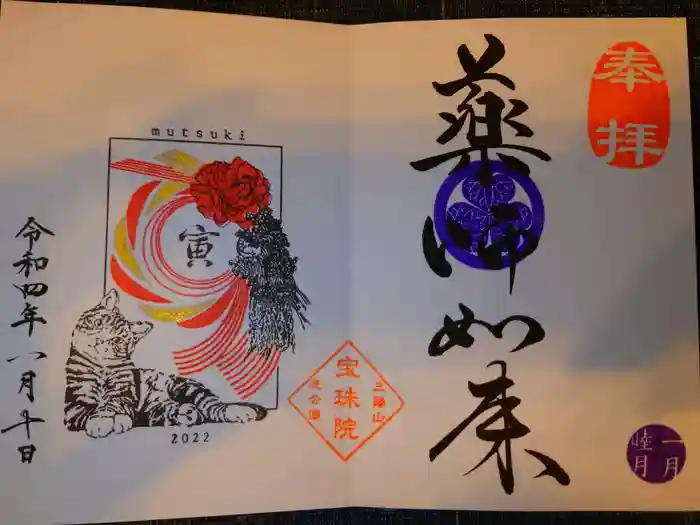 奉拝
薬師如来
一月
睦月
三縁山
宝珠院
芝公園
mutsuki
寅
2022
令和四年八月十日